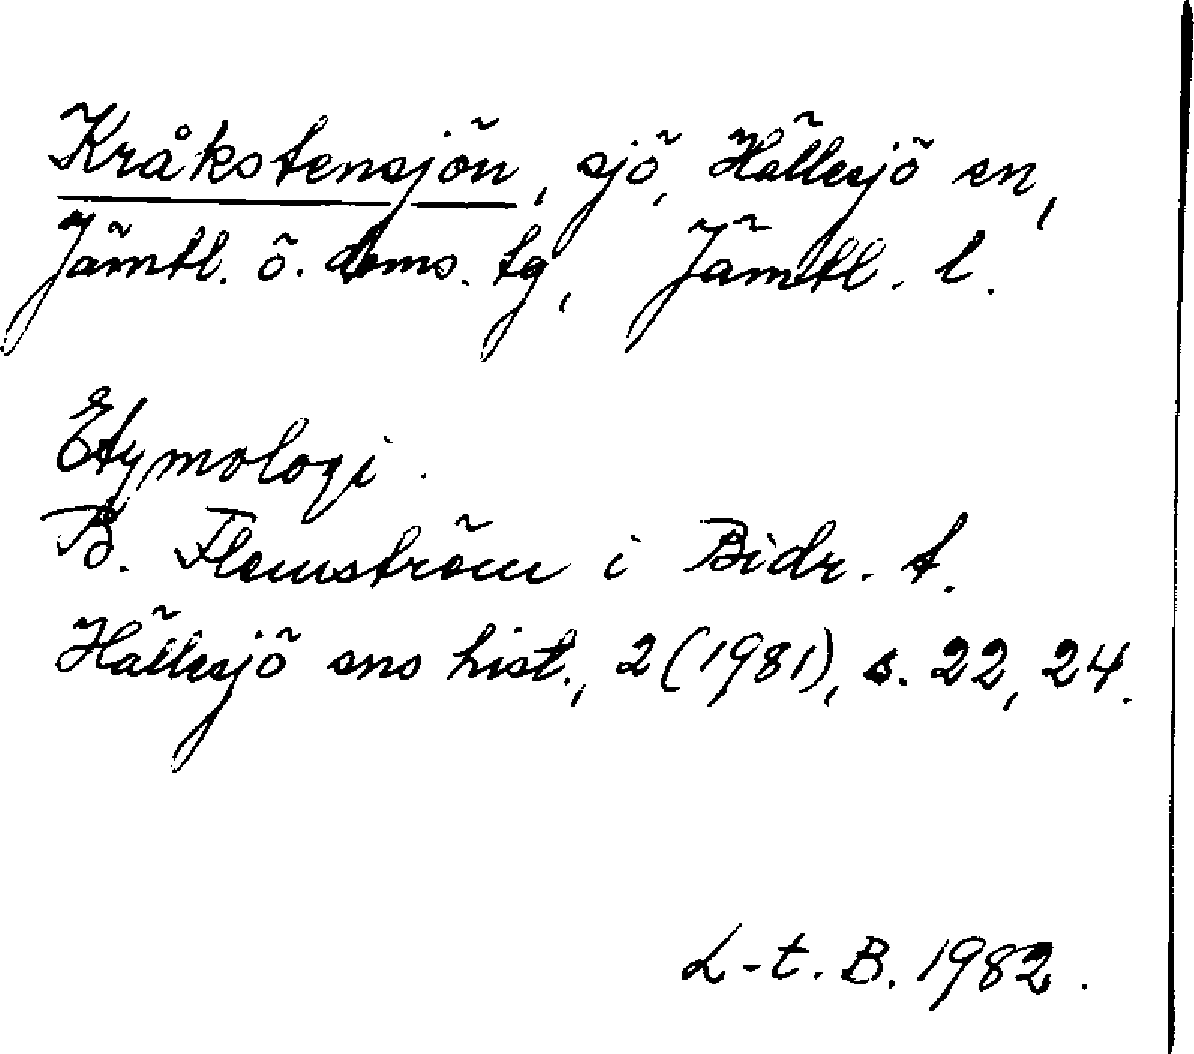 Kråkstensjön, sjö, Hällesjö sn,
Jämtl. ö. doms. tg, Jämtl. l.
Etymologi.
B. Flemström i Bidr. t.
Hällesjö sns hist., 2 (1981), s. 22, 24.
L-t. B. 1982.